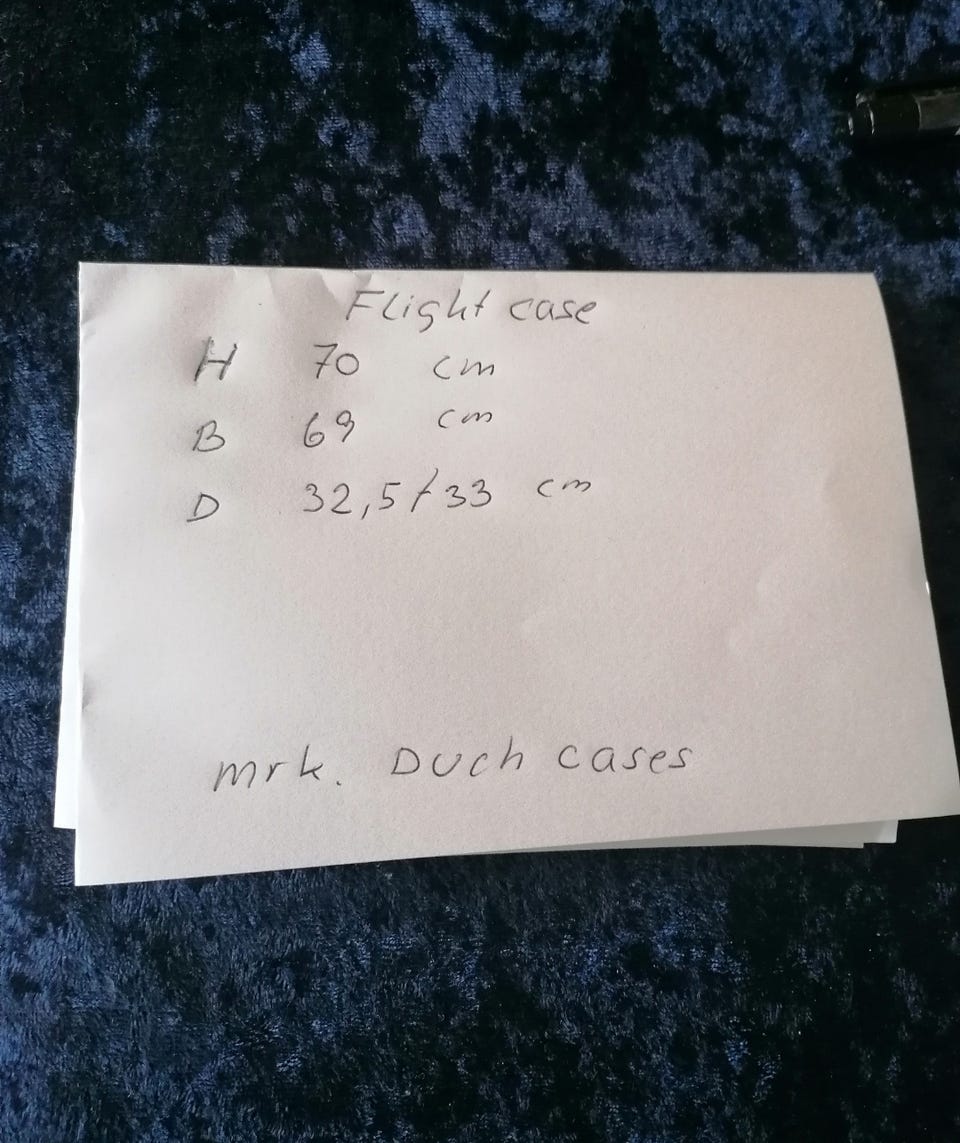 Flight case
H 70 cm
B 69 cm
D 32,5/33 cm
mrk. Duch cases